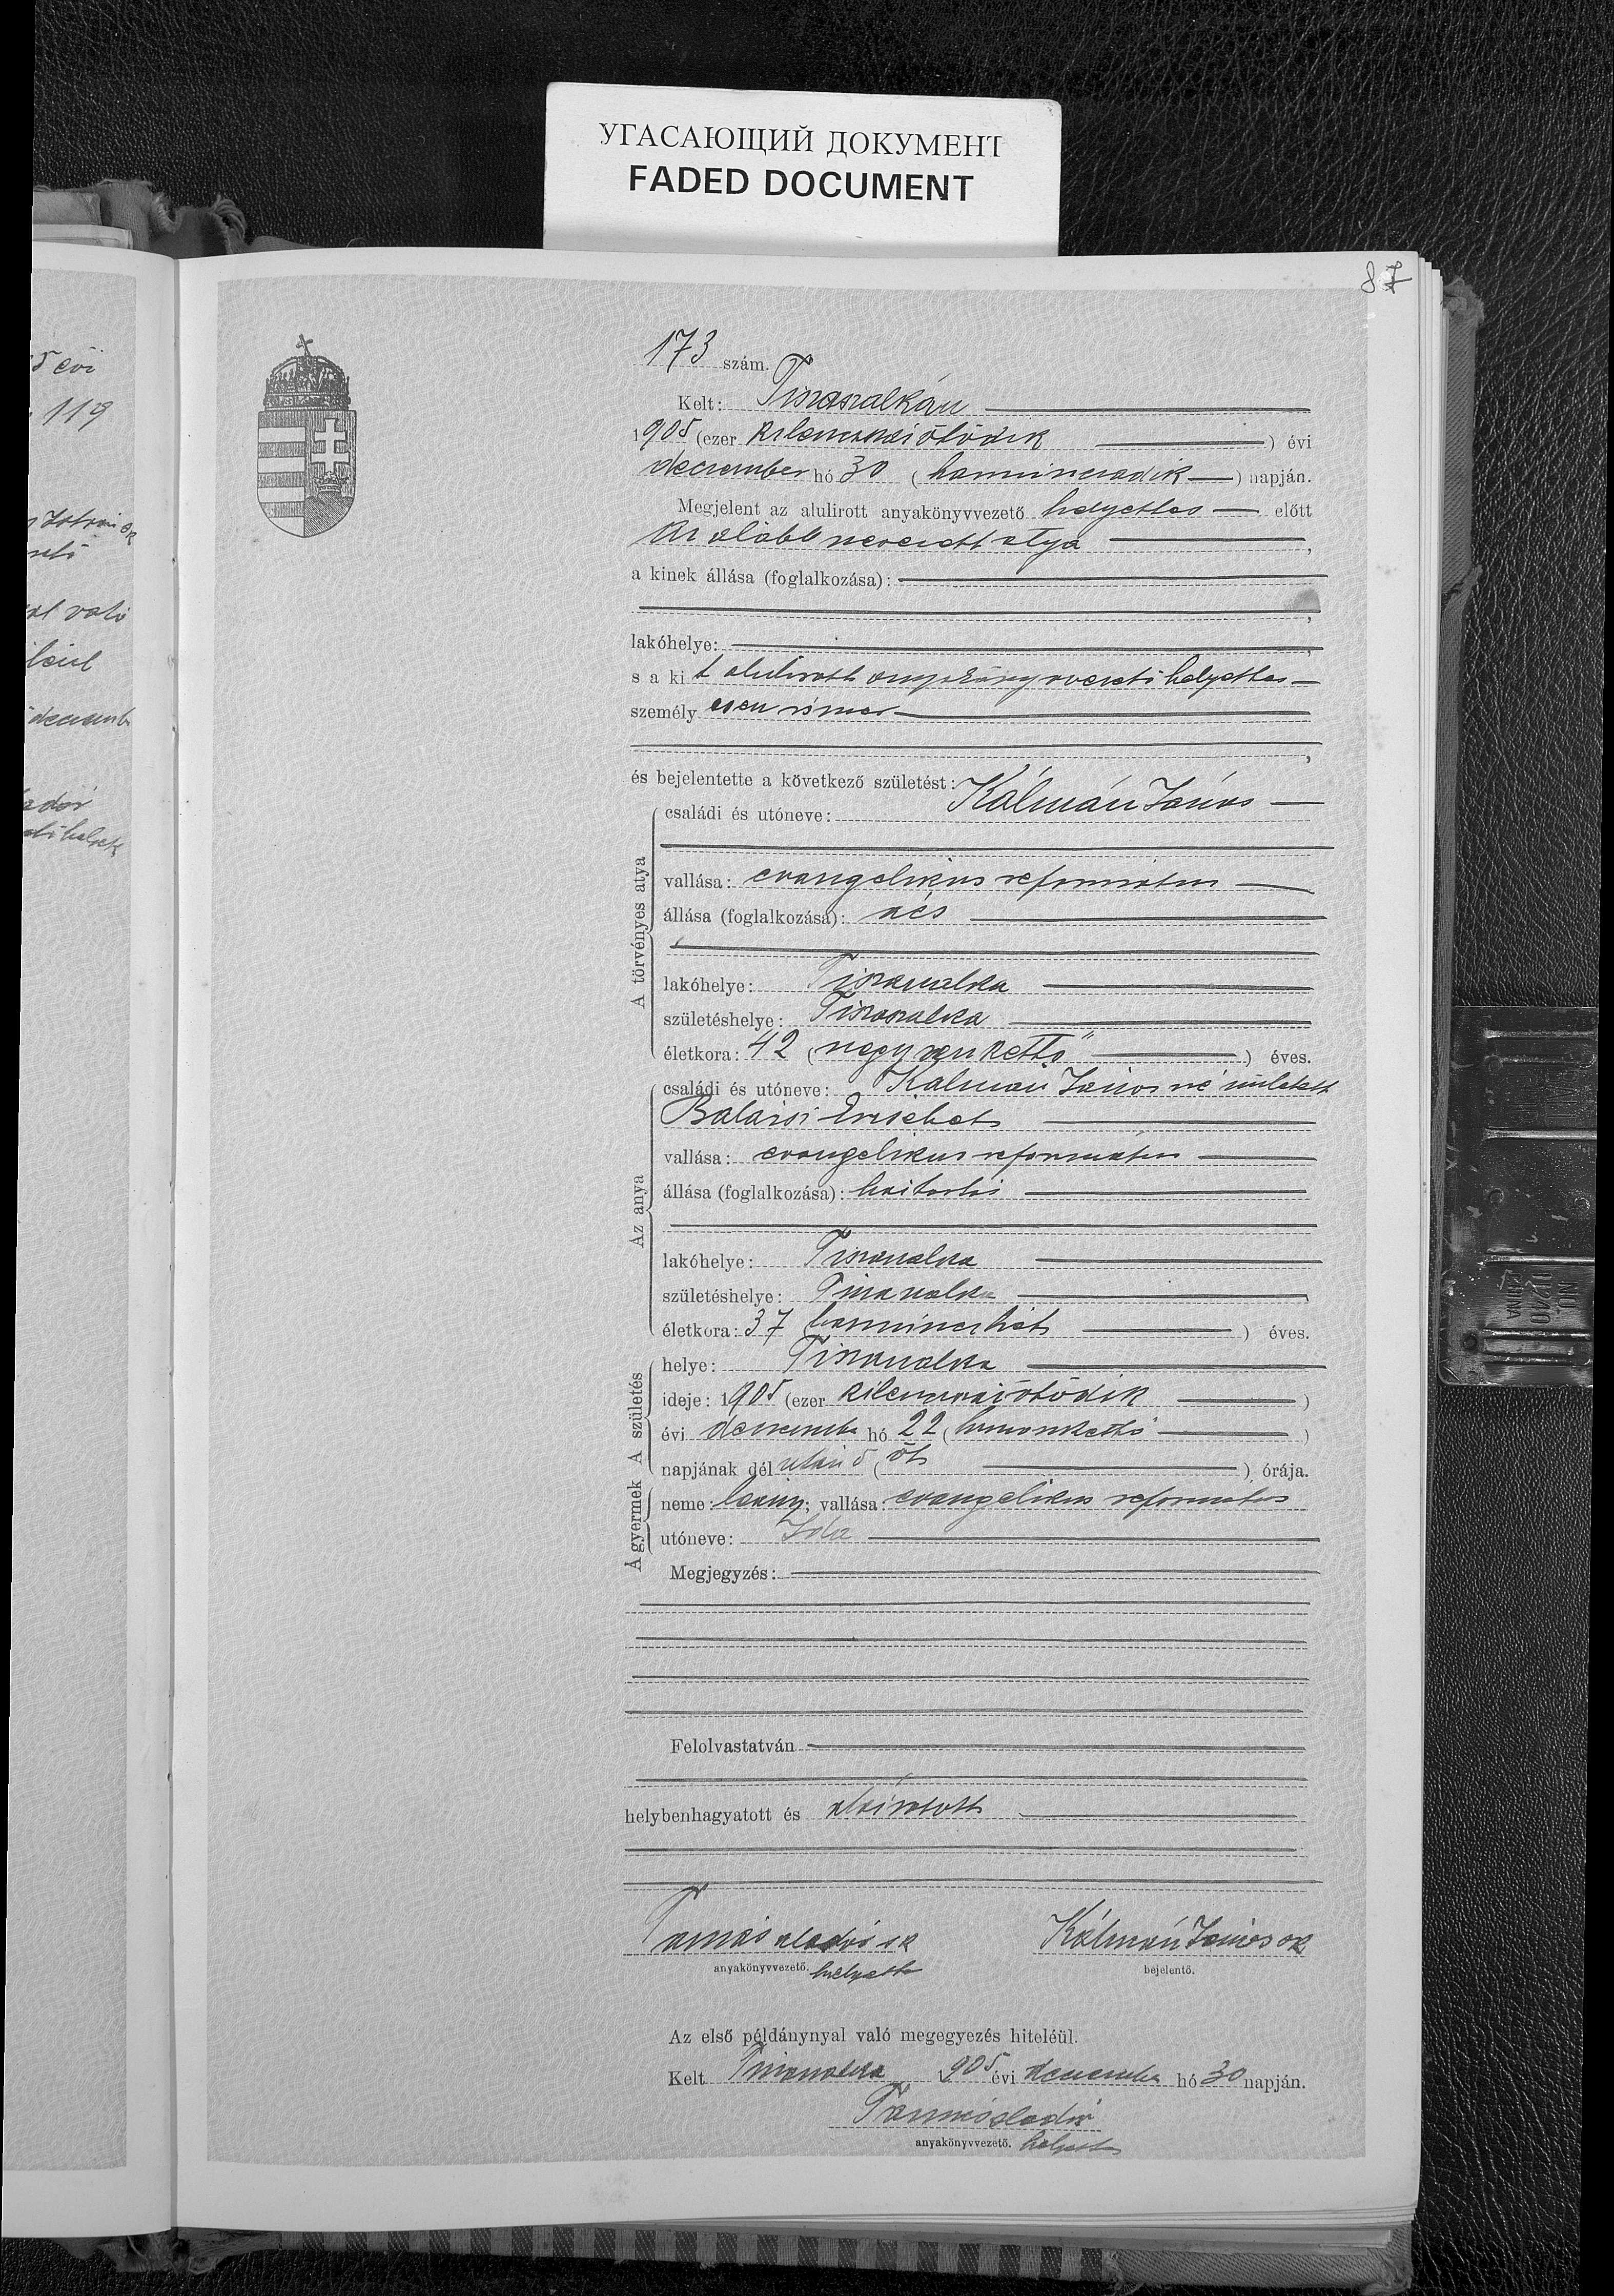 УГАСАЮЩИЙ ДОКУМЕНТ
FADED DOCUMENT
87
5 évi
119
173 szám.
Kelt: Tiszaszalkán
1905 (ezer kilenczszázötödik) évi
deczember hó 30 (harminczadik) napján.
Megjelent az alulirott anyakönyvvezető helyettes előtt
az alább nevezett atya,
a kinek állása (foglalkozása):
lakóhelye:
s a kit alulirott anyakönyvvezető helyettes
személyesen ismer
és bejelentette a következő születést:
A törvényes atya
családi és utóneve: Kálmán János
vallása: evangelikus református
állása (foglalkozása): ács
lakóhelye: Tiszaszalka
születéshelye: Tiszaszalka
életkora: 42 (negyvenkettő) éves.
Az anya
családi és utóneve: Kálmán Jánosné született
Balázsi Erzsébet
vallása: evangelikus református
állása (foglalkozása): háztartás
lakóhelye: Tiszaszalka
születéshelye: Tiszaszalka
életkora: 37 harminczhét) éves.
A születés
helye: Tiszaszalka
ideje: 1905 (ezer kilenczszázötödik)
évi deczember hó 22 (huszonkettő)
napjának dél után 5 (öt) órája.
A gyermek
neme: leány; vallása: evangelikus református
utóneve: Ida
Megjegyzés:
Felolvastatván
helybenhagyatott és aláiratott
Tamás Aladár sk Kálmán János sk
anyakönyvvezető. helyettes bejelentő.
Az első példánynyal való megegyezés hiteléül.
Kelt Tiszaszalka 1905 évi deczember hó 30 napján.
Tamás Aladár
anyakönyvvezető. helyettes